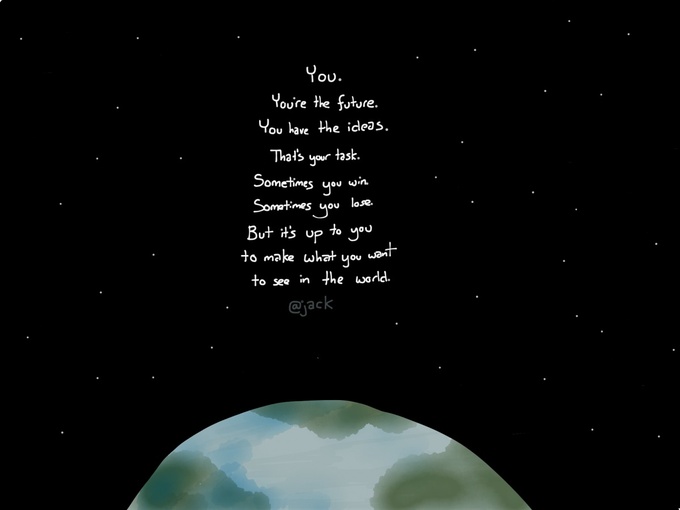 You.
You're the future.
You have the ideas.
That's your task.
Sometimes you win.
Sometimes you lose.
But it's up to you
to make what you want
to see in the world.
@jack